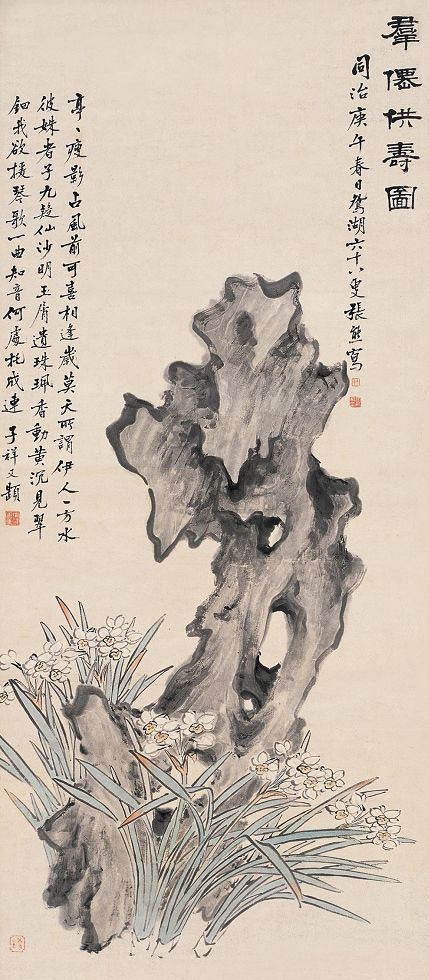 羣僊供壽圖
同治庚午春日鴛湖六十八叟張熊寫
亭、瘦影占風前可喜相逢歲莫天所謂伊人一方水
彼姝者子九疑仙沙明玉屑遺珠珮香動黃沉見翠
鈿我欲援琴歌一曲知音何處托成連 子祥又題